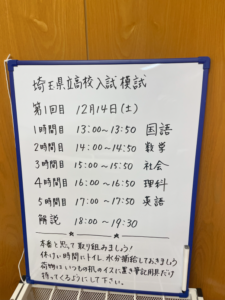 埼玉県立高校入試模試
第1回目 12月14日(土)
1時間目 13:00~13:50 国語
2時間目 14:00~14:50 数学
3時間目 15:00~15:50 社会
4時間目 16:00~16:50 理科
5時間目 17:00~17:50 英語
解説 18:00~19:30
本番と思って取り組みましょう!
休けい時間にトイレ、水分補給しておきましょう
荷物はいつもの机のイスに置き筆記用具だけ
持ってくるようにして下さい。